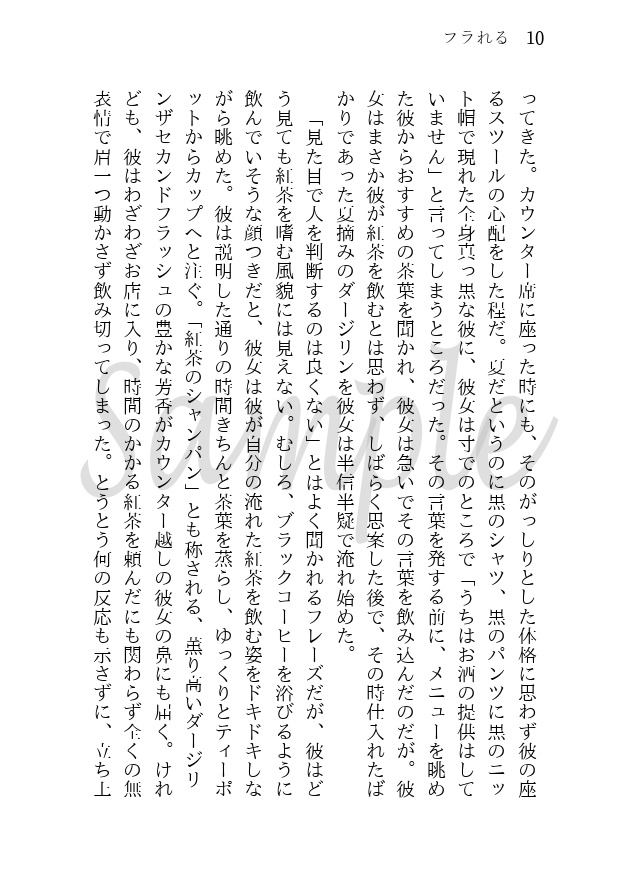 フラれる 10
ってきた。カウンター席に座った時にも、そのがっしりとした体格に思わず彼の座
るスツールの心配をした程だ。夏だというのに黒のシャツ、黒のパンツに黒のニッ
ト帽で現れた全身真っ黒な彼に、彼女は寸でのところで「うちはお酒の提供はして
いません」と言ってしまうところだった。その言葉を発する前に、メニューを眺め
た彼からおすすめの茶葉を聞かれ、彼女は急いでその言葉を飲み込んだのだが。彼
女はまさか彼が紅茶を飲むとは思わず、しばらく思案した後で、その時仕入れたば
かりであった夏摘みのダージリンを彼女は半信半疑で淹れ始めた。
「見た目で人を判断するのは良くない」とはよく聞かれるフレーズだが、彼はど
う見ても紅茶を嗜む風貌には見えない。むしろ、ブラックコーヒーを浴びるように
飲んでいそうな顔つきだと、彼女は彼が自分の淹れた紅茶を飲む姿をドキドキしな
がら眺めた。彼は説明した通りの時間きちんと茶葉を蒸らし、ゆっくりとティーポ
ットからカップへと注ぐ。「紅茶のシャンパン」とも称される、薫り高いダージリ
ンザセカンドフラッシュの豊かな芳香がカウンター越しの彼女の鼻にも届く。けれ
ども、彼はわざわざお店に入り、時間のかかる紅茶を頼んだにも関わらず全くの無
表情で眉一つ動かさず飲み切ってしまった。とうとう何の反応も示さずに、立ち上
Sample